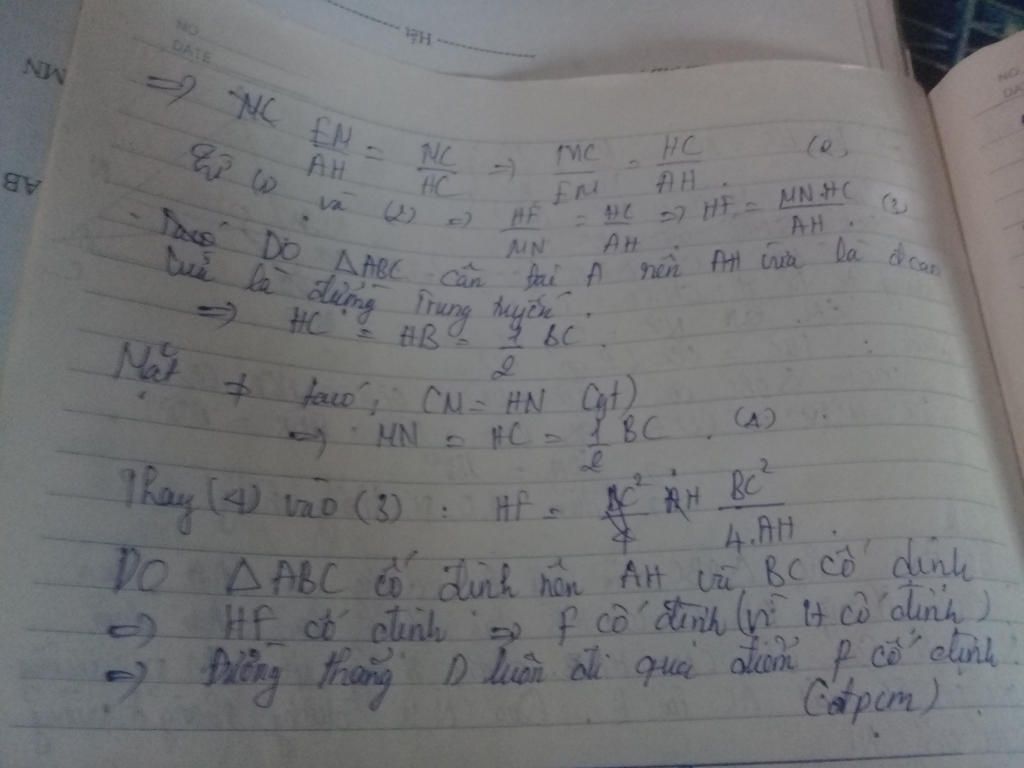 Hết
NO
DATE
NO.
DA
MN
AB
=> MC
EM/AH = MC/HC => MC/EM = HC/AH
và (2) => HF/MN = HC/AH => HF = MN.HC/AH. (3)
DO △ABC cân tại A nên AH vừa là đ cao
là đường Trung tuyến.
=> HC = HB = 1/2 BC.
Mặt ≠ ta có: CM = HN (gt)
=> MN = HC = 1/2 BC. (4)
Thay (4) vào (3): HF = BC²/4.AH.
DO △ABC cố định nên AH và BC cố định
=> HF cố định => F cố định (vì H cố định)
=> Đường thẳng D luôn đi qua điểm F cố định
(đpcm)